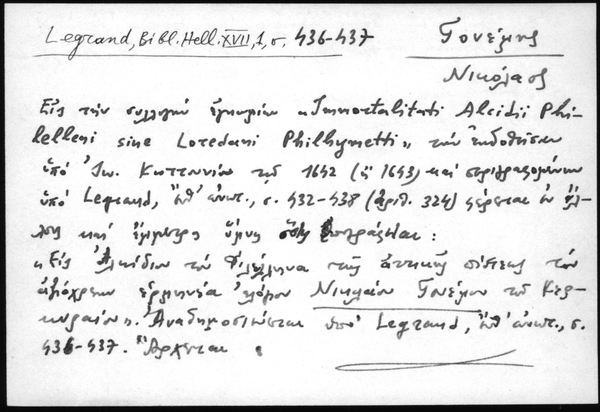 Legrand, Bibl. Hell. XVII, 1, σ. 436-437
Γονέμης
Νικόλαος
Εἰς τὴν συλλογὴν ἐγκωμίων «Immortalitati Alcidii Phi-
lelleni sine Loredani Philhymetti», τὴν ἐκδοθεῖσαν
ὑπὸ Ἰω. Κωττουνίου τῷ 1642 (ἢ 1643) καὶ περιγραφομένην
ὑπὸ Legrand, ἔνθ' ἀνωτ., σ. 432-438 (ἀριθ. 324) φέρεται ἐν
καὶ ἔμμετρος ὕμνος :
«Εἰς Ἀλκίδιον τὸν Φιλέλληνα τῆς ἀττικῆς πίστεως τὸν
ἀξιόχρεων ἑρμηνέα Νικολάου Γονέμου τοῦ Κερ-
κυραίου». Ἀναδημοσιεύεται ὑπὸ Legrand, ἔνθ' ἀνωτ., σ.
436-437. Ἄρχεται :